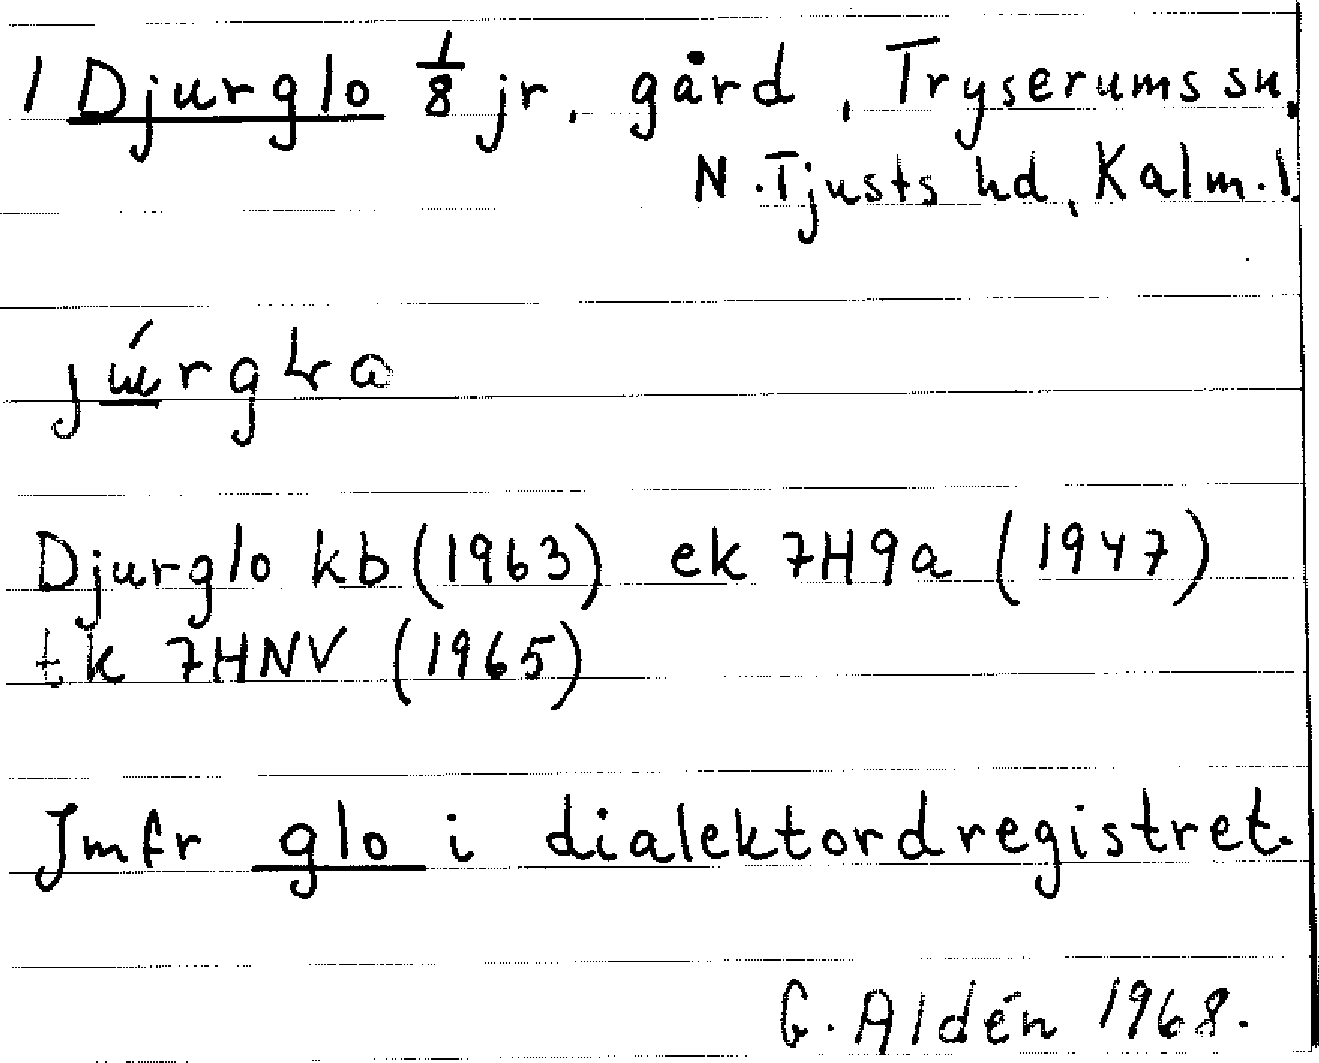 1 Djurglo 1/8 jr, gård, Tryserums sn,
N. Tjusts hd, Kalm. l.
Djurglo kb (1963) ek 7H9a (1947)
tk 7HNV (1965)
Jmfr glo i dialektordregistret.
G. Aldén 1968.